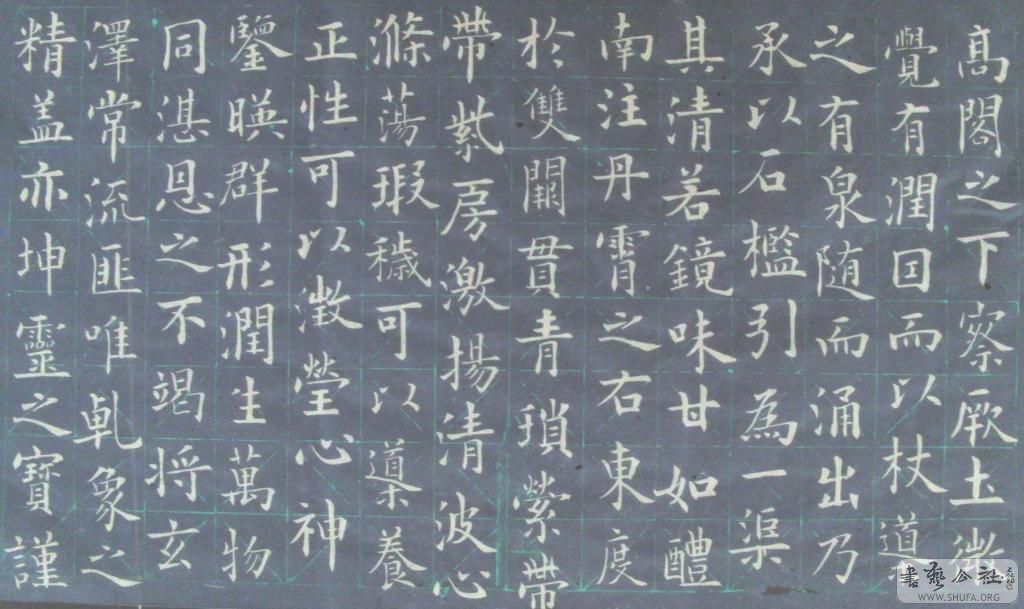 高閣之下察厥土微
覺有潤囙而以杖道之
之有泉随而涌出乃
承以石檻引為一渠
其清若鏡味甘如醴
南注丹霄之右東度
於雙闕貫青瑣縈帶
帶紫房激揚清波心
滌蕩瑕穢可以導養
正性可以澂瑩心神
鑒暎群形潤生萬物
同湛恩之不竭将玄
澤常流匪唯乹象之
精盖亦坤靈之寶謹
書藝公社
WWW.SHUFA.ORG